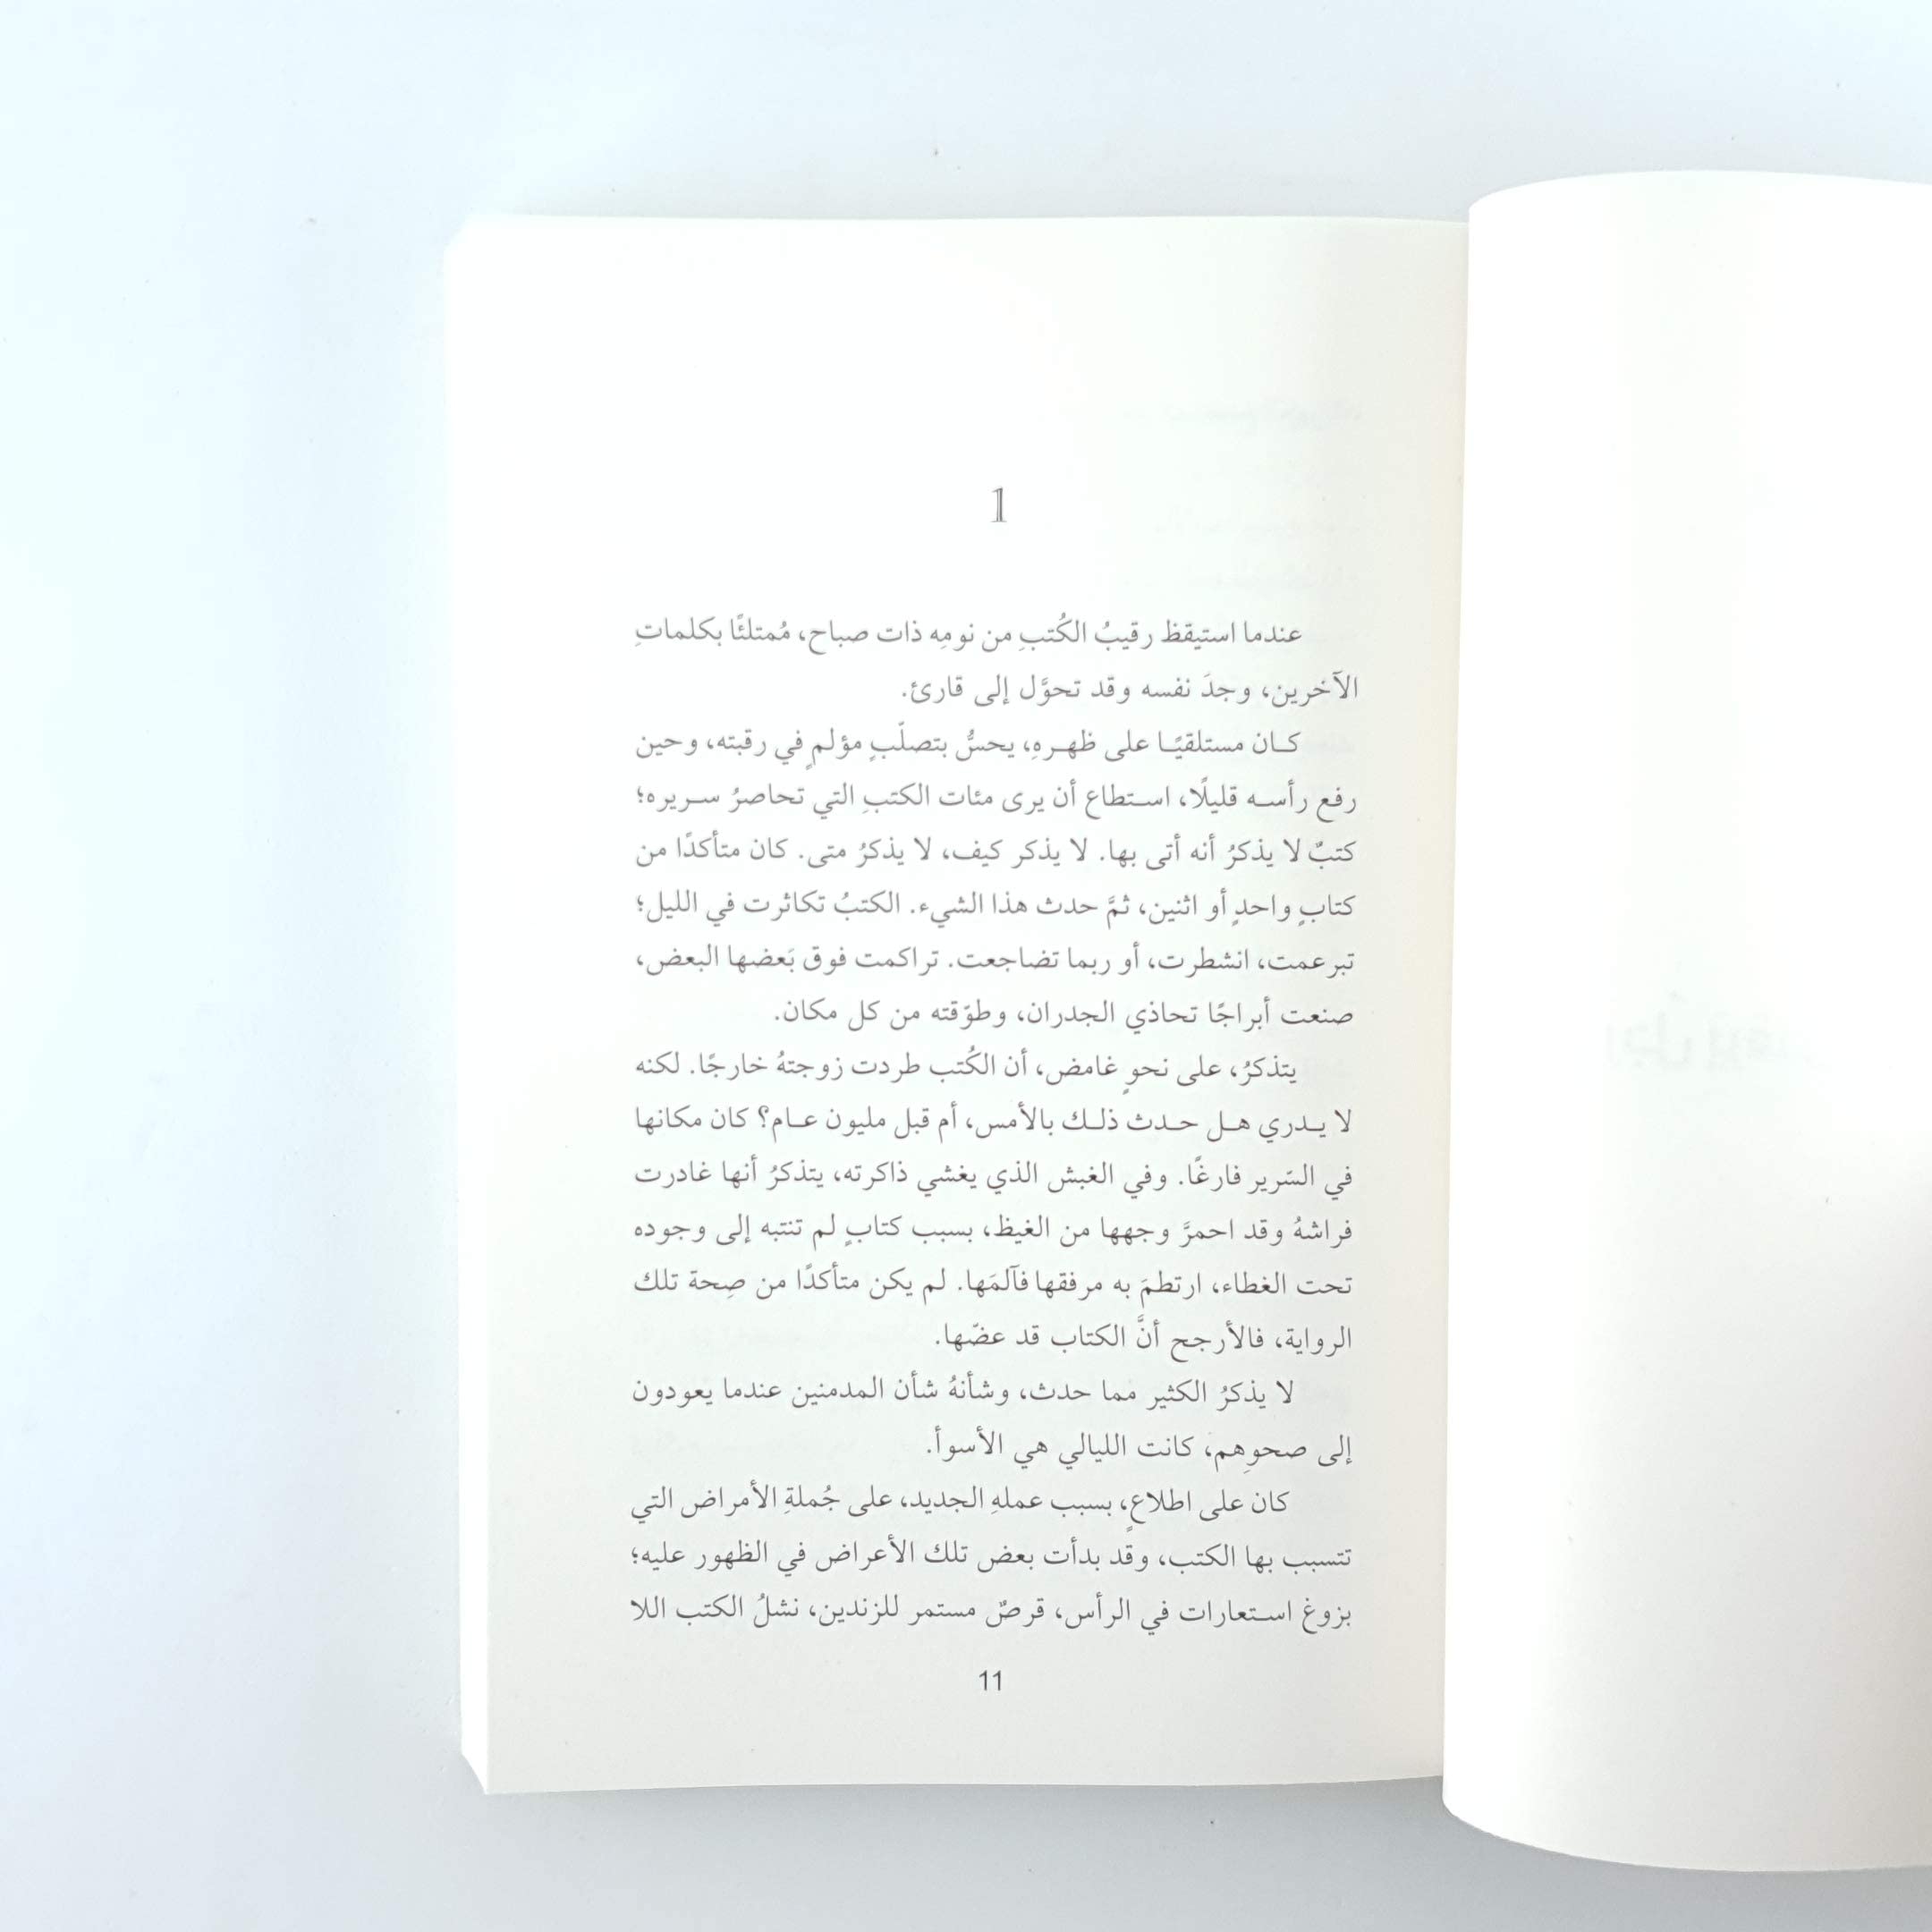 1
عندما استيقظ رقيبُ الكُتبِ من نومِه ذات صباح، مُمتلئًا بكلماتِ
الآخرين، وجدَ نفسه وقد تحوَّل إلى قارئ.
كـان مستلقيًـا على ظهـرهِ، يحسُّ بتصلّبٍ مؤلمٍ في رقبته، وحين
رفع رأسـه قليلًا، اسـتطاع أن يرى مئات الكتبِ التي تحاصرُ سـريره؛
كتبٌ لا يذكرُ أنه أتى بها. لا يذكر كيف، لا يذكرُ متى. كان متأكدًا من
كتابٍ واحدٍ أو اثنين، ثمَّ حدث هذا الشيء. الكتبُ تكاثرت في الليل؛
تبرعمت، انشطرت، أو ربما تضاجعت. تراكمت فوق بَعضها البعض،
صنعت أبراجًا تحاذي الجدران، وطوّقته من كل مكان.
يتذكرُ، على نحوٍ غامض، أن الكُتب طردت زوجتهُ خارجًا. لكنه
لا يـدري هـل حـدث ذلـك بالأمس، أم قبل مليون عـام؟ كان مكانها
في السّرير فارغًا. وفي الغبش الذي يغشي ذاكرته، يتذكرُ أنها غادرت
فراشهُ وقد احمرَّ وجهها من الغيظ، بسبب كتابٍ لم تنتبه إلى وجوده
تحت الغطاء، ارتطمَ به مرفقها فآلمَها. لم يكن متأكدًا من صِحة تلك
الرواية، فالأرجح أنَّ الكتاب قد عضّها.
لا يذكرُ الكثير مما حدث، وشأنهُ شأن المدمنين عندما يعودون
إلى صحوِهم، كانت الليالي هي الأسوأ.
كان على اطلاعٍ، بسبب عملهِ الجديد، على جُملةِ الأمراض التي
تتسبب بها الكتب، وقد بدأت بعض تلك الأعراض في الظهور عليه؛
بزوغ اسـتعارات في الرأس، قرصٌ مستمر للزندين، نشلُ الكتب اللا
11